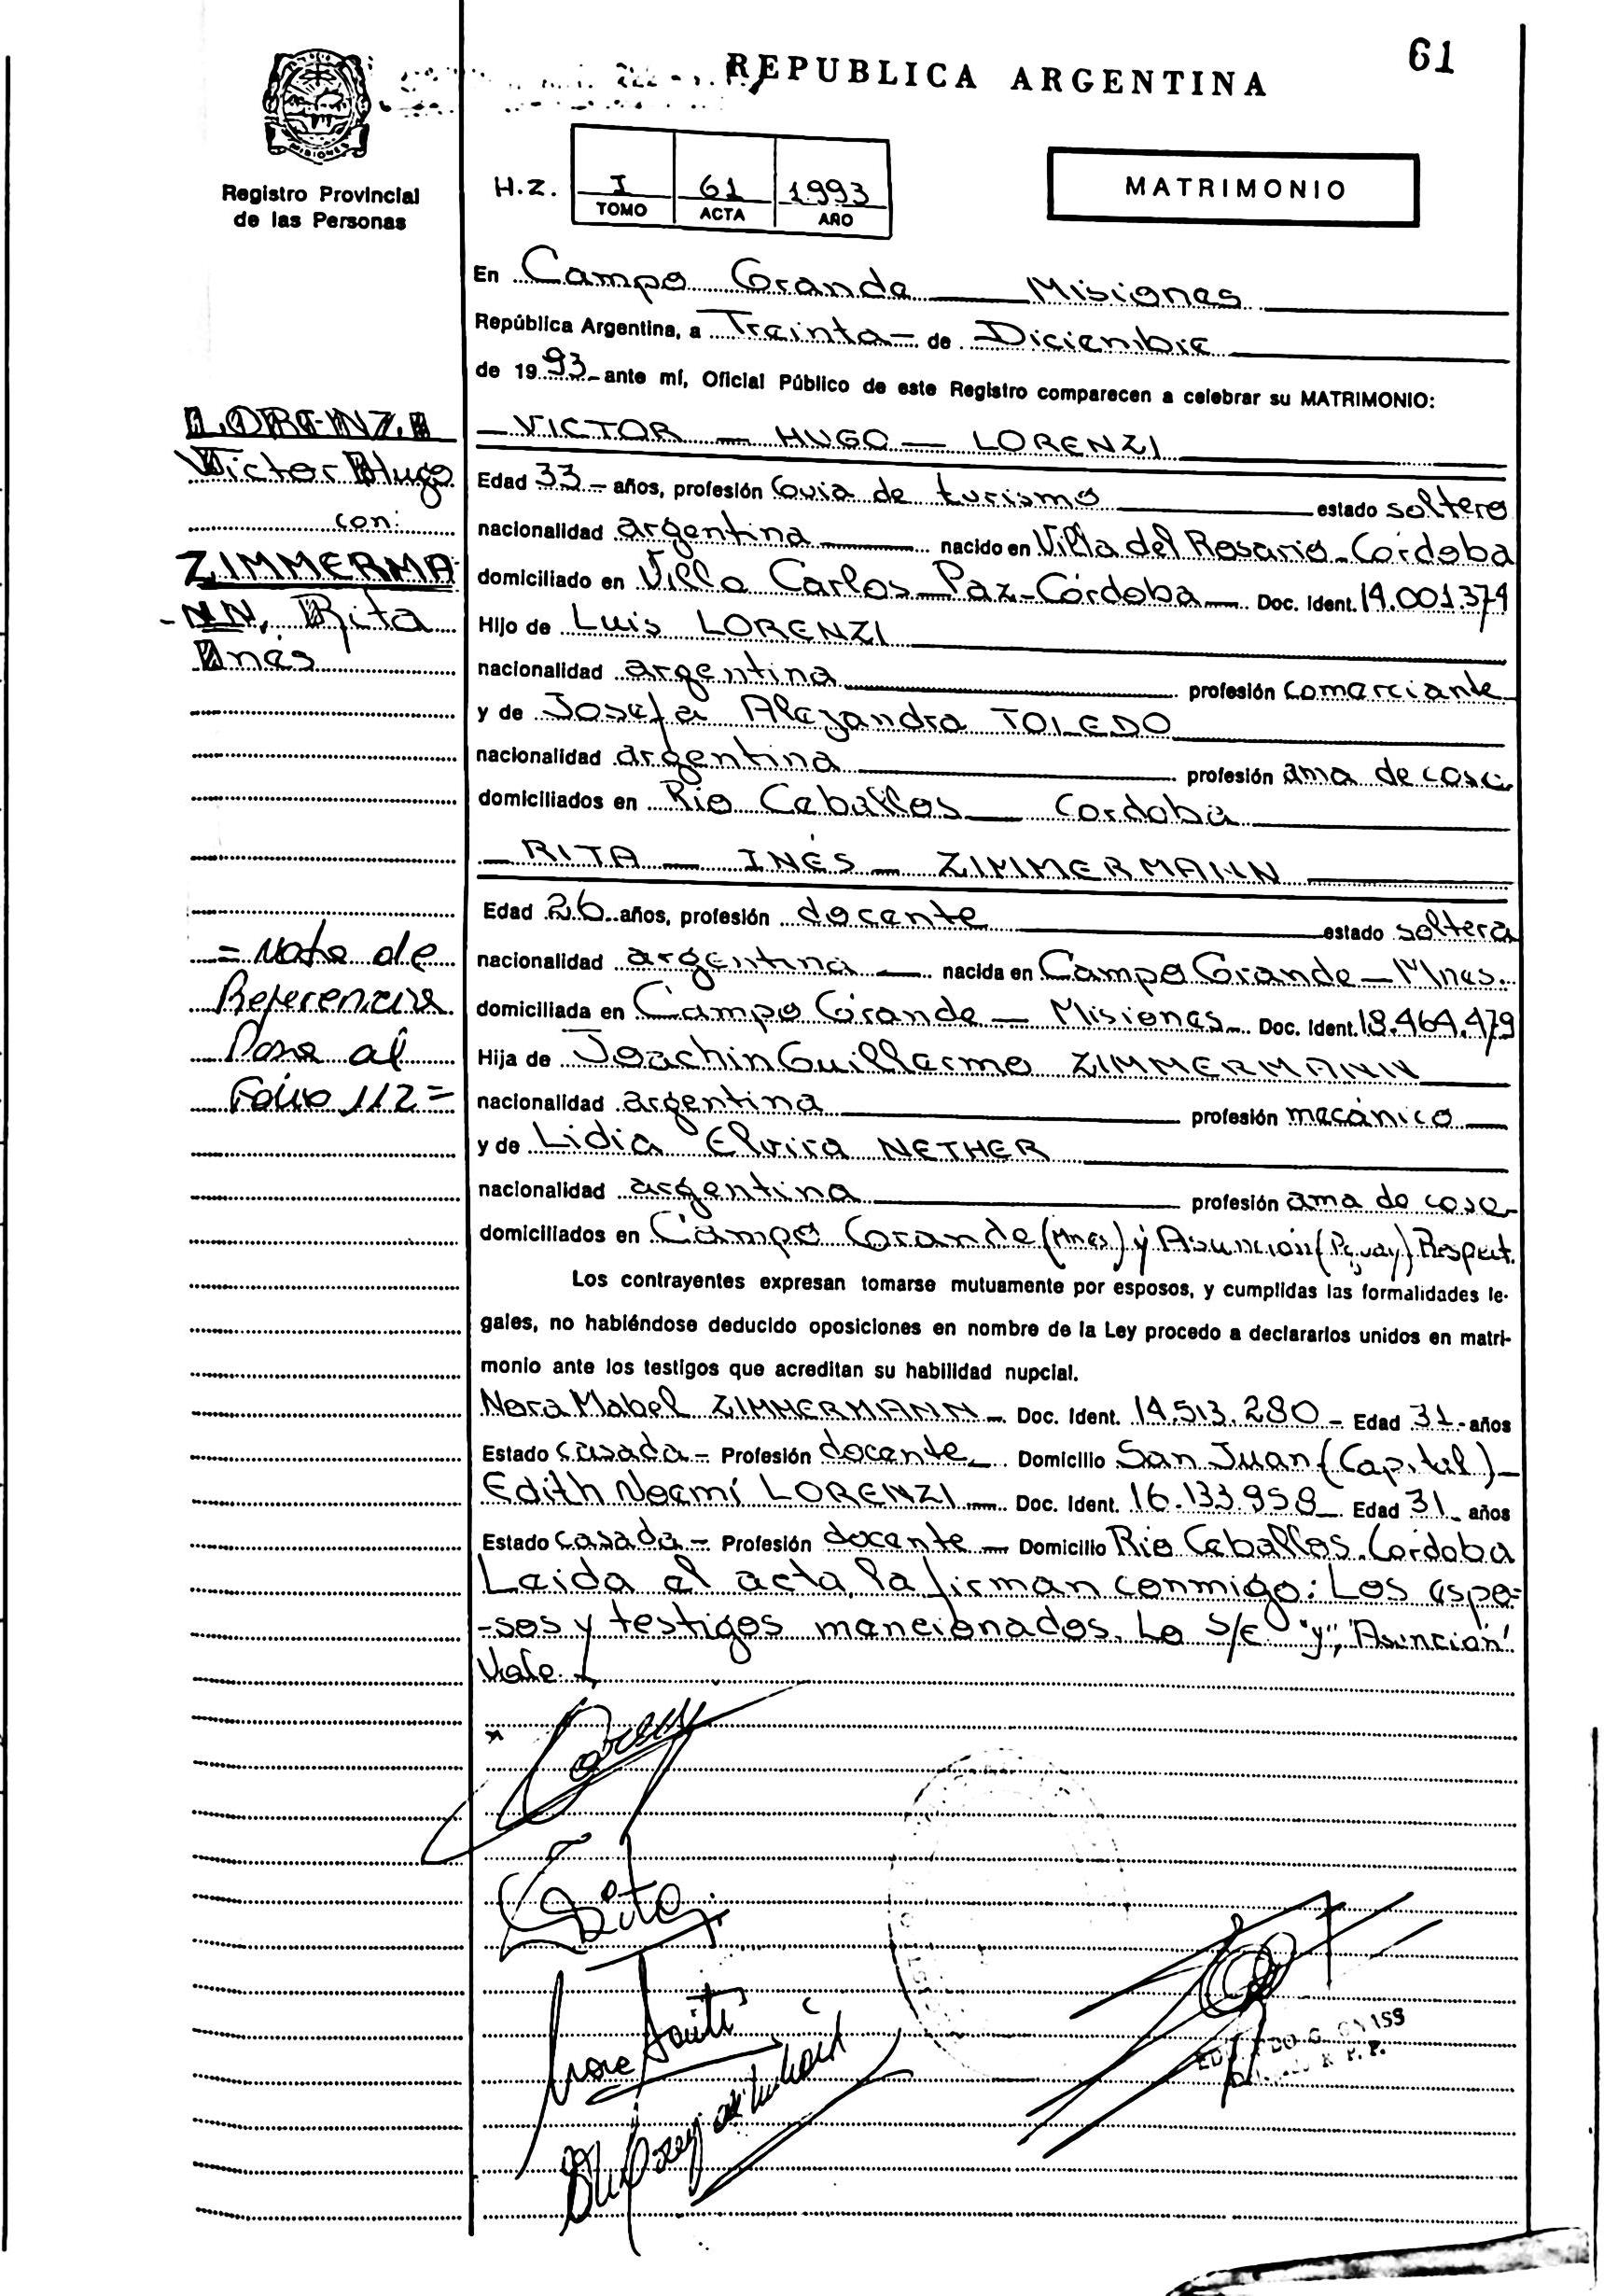 61
REPUBLICA ARGENTINA
MISIONES
Registro Provincial
de las Personas
H.Z. I 61 1993
TOMO ACTA AÑO
MATRIMONIO
En Campo Grande — Misiones
República Argentina, a Treinta — de Diciembre
de 1993 — ante mí, Oficial Público de este Registro comparecen a celebrar su MATRIMONIO:
LORENZI
Victor Hugo
con:
ZIMMERMA
-NN, Rita
Inés
= Nota de
Referencia
Pasa al
Folio 112 =
— VICTOR — HUGO — LORENZI
Edad 33 — años, profesión Guia de turismo estado soltero
nacionalidad argentina — nacido en Villa del Rosario - Córdoba
domiciliado en Villa Carlos Paz - Córdoba — Doc. Ident. 14.001.374
Hijo de Luis LORENZI
nacionalidad argentina profesión comerciante
y de Josefa Alejandra TOLEDO
nacionalidad argentina profesión ama de casa
domiciliados en Rio Ceballos — Cordoba
— RITA — INÉS — ZIMMERMANN
Edad 26 años, profesión docente estado soltera
nacionalidad argentina — nacida en Campo Grande — Mnes.
domiciliada en Campo Grande — Misiones — Doc. Ident. 18.464.479
Hija de Joachin Guillermo ZIMMERMANN
nacionalidad argentina profesión mecánico
y de Lidia Elvira NETHER
nacionalidad argentina profesión ama de casa
domiciliados en Campo Grande (Mnes) y Asunción (Pguay) Respect.
Los contrayentes expresan tomarse mutuamente por esposos, y cumplidas las formalidades le-
gales, no habiéndose deducido oposiciones en nombre de la Ley procedo a declararlos unidos en matri-
monio ante los testigos que acreditan su habilidad nupcial.
Nora Mabel ZIMMERMANN — Doc. Ident. 14.513.280 — Edad 31 - años
Estado casada — Profesión docente — Domicilio San Juan (Capital) —
Edith Noemí LORENZI — Doc. Ident. 16.133.958 — Edad 31 — años
Estado casada — Profesión docente — Domicilio Rio Ceballos. Cordoba
Leida el acta, la firman conmigo: Los espo-
-sos y testigos mencionados. Lo S/E "y", "Asunción"
Vale.
Rita